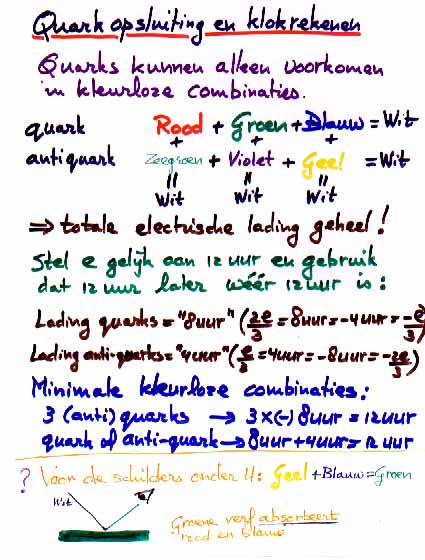 Quark opsluiting en klokrekenen
Quarks kunnen alleen voorkomen
in kleurloze combinaties.
quark Rood + Groen + Blauw = Wit
+ + +
antiquark Zeegroen + Violet + Geel = Wit
= = =
Wit Wit Wit
⇒ totale electrische lading geheel!
Stel e gelijk aan 12 uur en gebruik
dat 12 uur later wéér 12 uur is:
Lading quarks = "8uur" (2e/3 = 8uur = -4uur = -e/3)
Lading anti-quarks = "4uur" (e/3 = 4uur = -8uur = -2e/3)
Minimale kleurloze combinaties:
3 (anti) quarks → 3×(-) 8uur = 12uur
quark of anti-quark → 8uur + 4uur = 12 uur
? Vóór de schilders onder U: Geel + Blauw = Groen
Wit
Groene verf absorbeert
rood en blauw